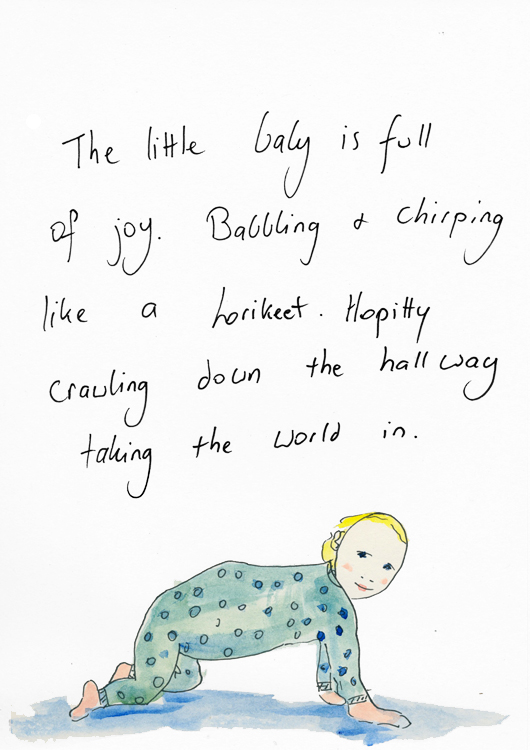 The little baby is full
of joy. Babbling & chirping
like a lorikeet. Hopitty
crawling down the hallway
taking the world in.